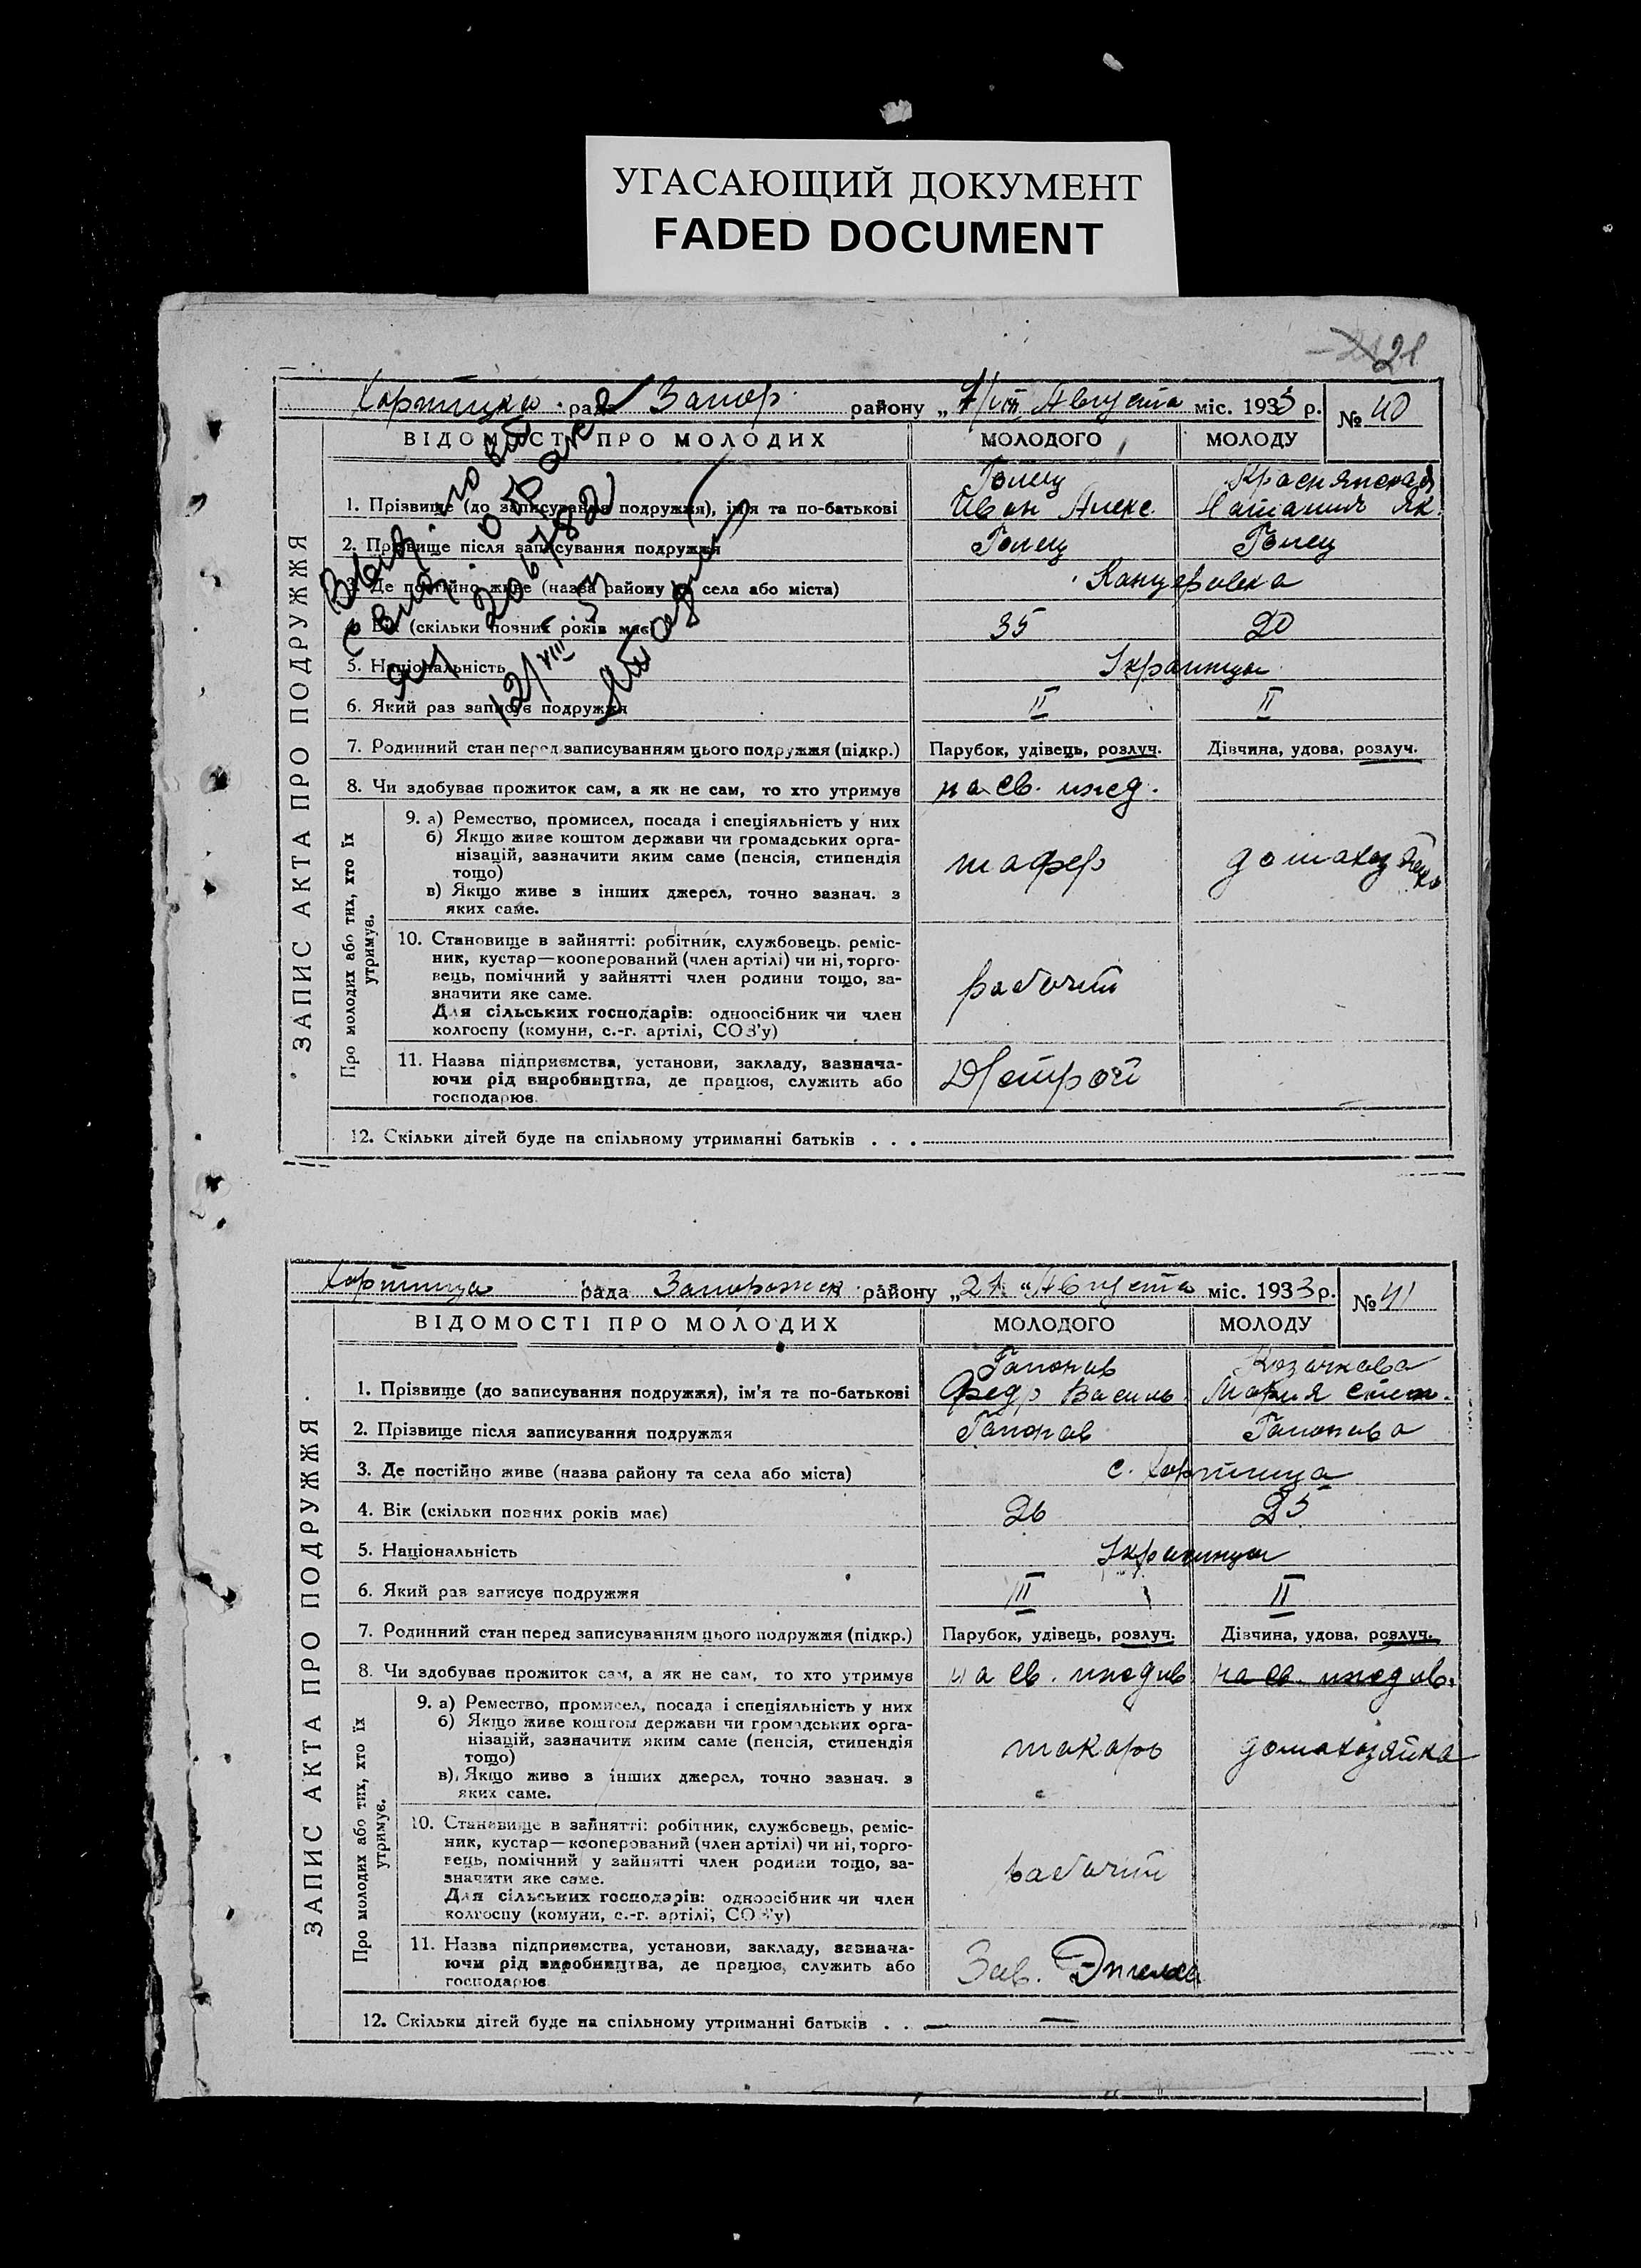 УГАСАЮЩИЙ ДОКУМЕНТ
FADED DOCUMENT
21
рада Запор. району „ Августа міс. 1933 р. № 40
ВІДОМОСТІ ПРО МОЛОДИХ МОЛОДОГО МОЛОДУ
ЗАПИС АКТА ПРО ПОДРУЖЖЯ
Голец Краснянская
1. Прізвище (до записування подружжя), ім'я та по-батькові Иван Алекс. Як.
2. Прізвище після записування подружжя Голец Голец
3. Де постійно живе (назва району та села або міста) Канцеровка
4. Вік (скільки повних років має) 35 20
5. Національність Украинцы
6. Який раз записує подружжя II II
7. Родинний стан перед записуванням цього подружжя (підкр.) Парубок, удівець, розлуч. Дівчина, удова, розлуч.
8. Чи здобуває прожиток сам, а як не сам, то хто утримує на св. ижд.
Про молодих або тих, хто їх утримує.
9. а) Ремество, промисел, посада і спеціяльність у них
б) Якщо живе коштом держави чи громадських орга-
нізацій, зазначити яким саме (пенсія, стипендія
тощо)
в) Якщо живе з інших джерел, точно зазнач. з
яких саме.
шофер домохозяйка
10. Становище в зайнятті: робітник, службовець, реміс-
ник, кустар—кооперований (член артілі) чи ні, торго-
вець, помічний у зайнятті член родини тощо, за-
значити яке саме.
Для сільських господарів: одноосібник чи член
колгоспу (комуни, с.-г. артілі, СОЗ'у)
рабочий
11. Назва підприємства, установи, закладу, зазнача-
ючи рід виробництва, де працює, служить або
господарює
12. Скільки дітей буде на спільному утриманні батьків . . .
206782
12/VIII 53
Хортица рада Запорожск району „21 “ Августа міс. 1933 р. № 41
ВІДОМОСТІ ПРО МОЛОДИХ МОЛОДОГО МОЛОДУ
ЗАПИС АКТА ПРО ПОДРУЖЖЯ
Гапонов Козачкова
1. Прізвище (до записування подружжя), ім'я та по-батькові Федр Василь. Мария Степ.
2. Прізвище після записування подружжя Гапонов Гапонова
3. Де постійно живе (назва району та села або міста) с. Хортица
4. Вік (скільки повних років має) 26 25
5. Національність Украинцы
6. Який раз записує подружжя II II
7. Родинний стан перед записуванням цього подружжя (підкр.) Парубок, удівець, розлуч. Дівчина, удова, розлуч.
8. Чи здобуває прожиток сам, а як не сам, то хто утримує на св. иждив. на св. иждив.
Про молодих або тих, хто їх утримує.
9. а) Ремество, промисел, посада і спеціяльність у них
б) Якщо живе коштом держави чи громадських орга-
нізацій, зазначити яким саме (пенсія, стипендія
тощо)
в) Якщо живе з інших джерел, точно зазнач. з
яких саме.
токарь домохозяйка
10. Становище в зайнятті: робітник, службовець, реміс-
ник, кустар—кооперований (член артілі) чи ні, торго-
вець, помічний у зайнятті член родини тощо, за-
значити яке саме.
Для сільських господарів: одноосібник чи член
колгоспу (комуни, с.-г. артілі, СОЗ'у)
рабочий
11. Назва підприємства, установи, закладу, зазнача-
ючи рід виробництва, де працює, служить або
господарює
Зав. Энгельса
12. Скільки дітей буде на спільному утриманні батьків . . —